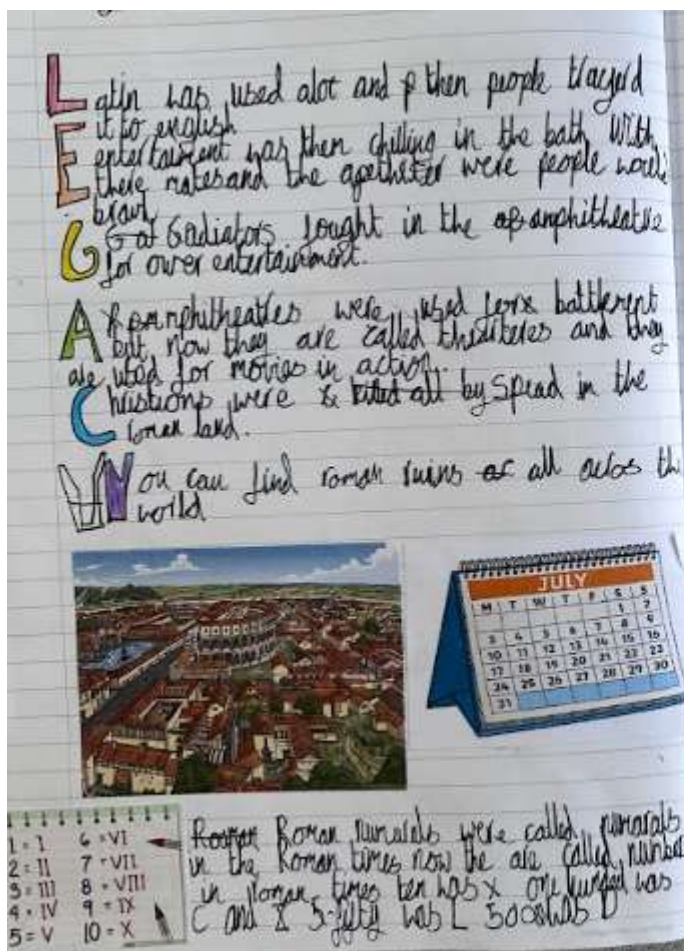 Latin was used alot and then people trayerd
it to english
entertaiment was then chilling in the bath with
there mates and the were people
G Gadiators fought in the amphitheatre
for ower entertainment.
Amphitheatres were used for battlement
but now they are called and they
are used for movies in action.
Christions were killed all by Spread in the
roman land.
You can find roman ruins all acros the
world
JULY
M T W T F S S
1 2
3 4 5 6 7 8 9
10 11 12 13 14 15 16
17 18 19 20 21 22 23
24 25 26 27 28 29 30
31
1 = I 6 = VI
2 = II 7 = VII
3 = III 8 = VIII
4 = IV 9 = IX
5 = V 10 = X
Roman Roman numarals were called numarals
in the Roman times now the are called number
in roman times ten was x one hunded was
C and 5-fifty was L 500 was D